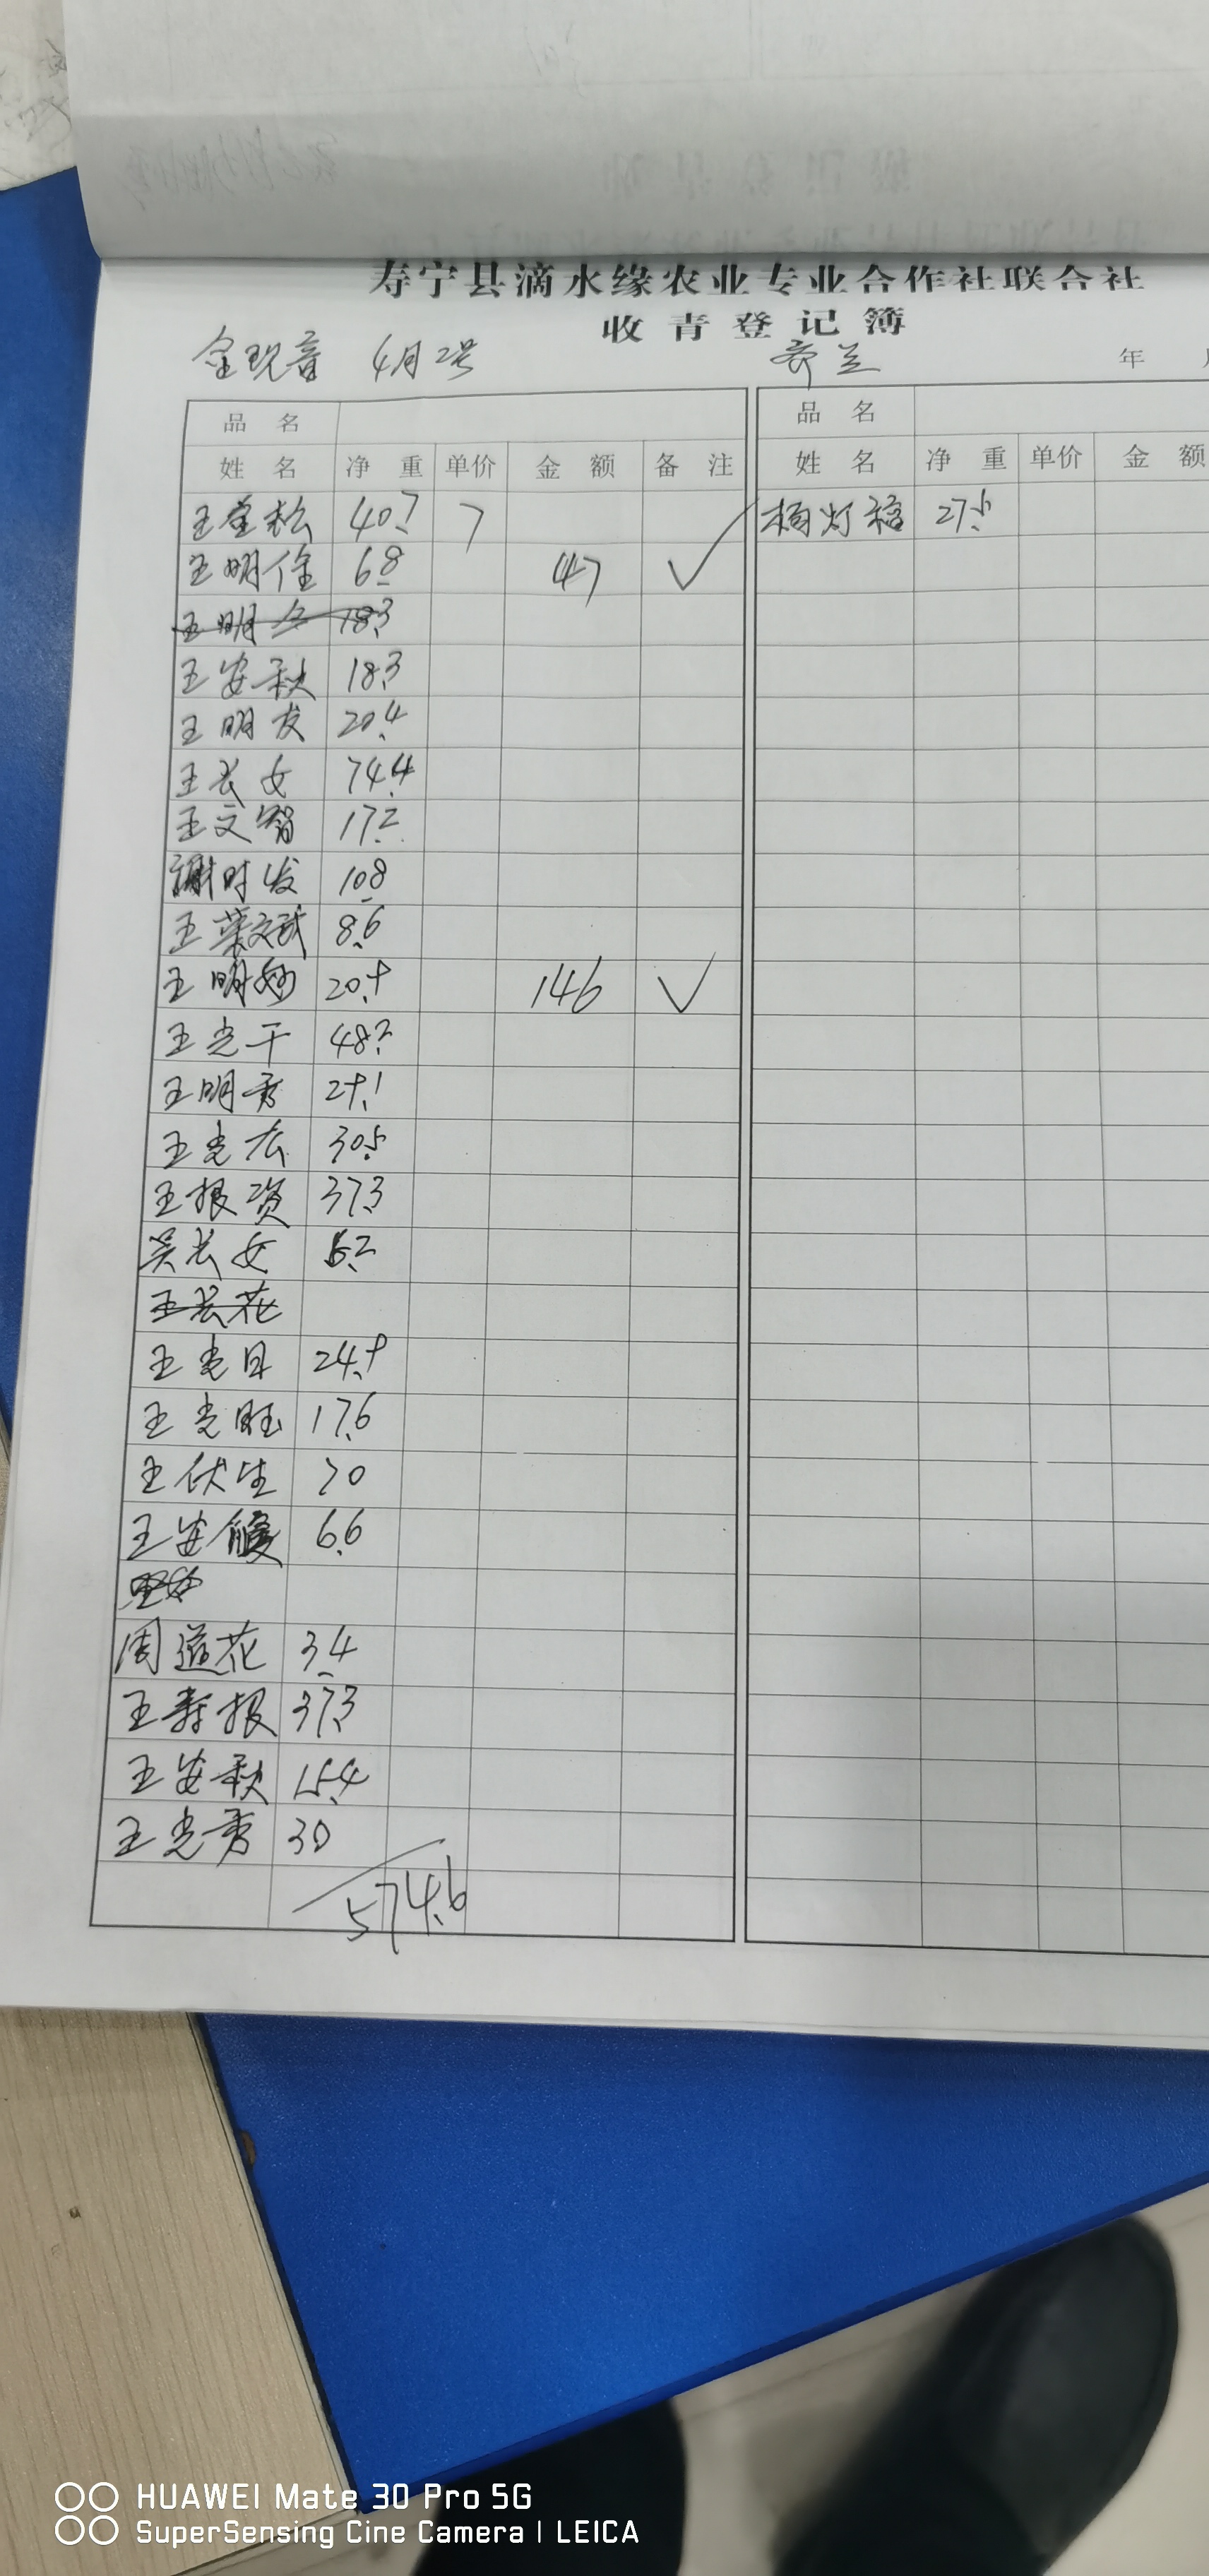 寿宁县滴水缘农业专业合作社联合社
收青登记簿
金观音 4月2号
奇兰 年
品名
姓名 净重 单价 金额 备注
40.7 7
王明佺 6.8 47 ✓
王明 18.3
王安秋 18.3
王明友 20.4
王长女 74.4
王文智 17.2
谢时发 10.8
王荣斌 8.6
王明妙 20.9 146 ✓
王光干 48.2
王明秀 29.1
王光宏 30.5
王根资 37.3
吴长女 6.2
王长花
王光日 24.9
王光旺 17.6
王伏生 70
王安 6.6
周道花 3.4
王寿根 37.3
王安秋 15.4
王光秀 30
574.6
品名
姓名 净重 单价 金额
杨灯禧 27.5
HUAWEI Mate 30 Pro 5G
SuperSensing Cine Camera | LEICA